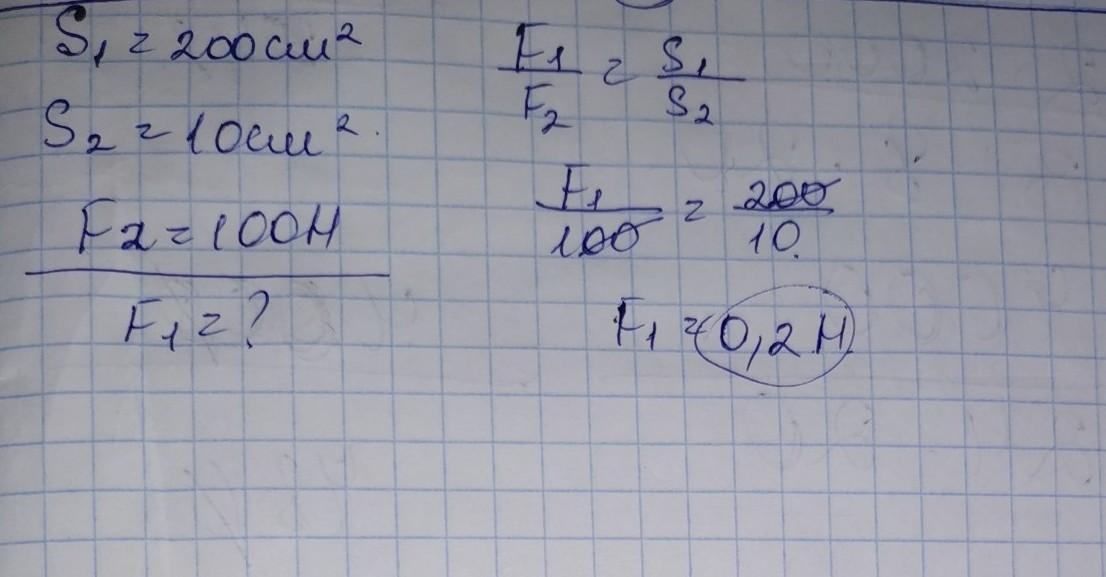 S₁ = 200см²
S₂ = 10см²
F₂ = 100Н
F₁ = ?
F₁/F₂ = S₁/S₂
F₁/100 = 200/10
F₁ = 0,2 Н